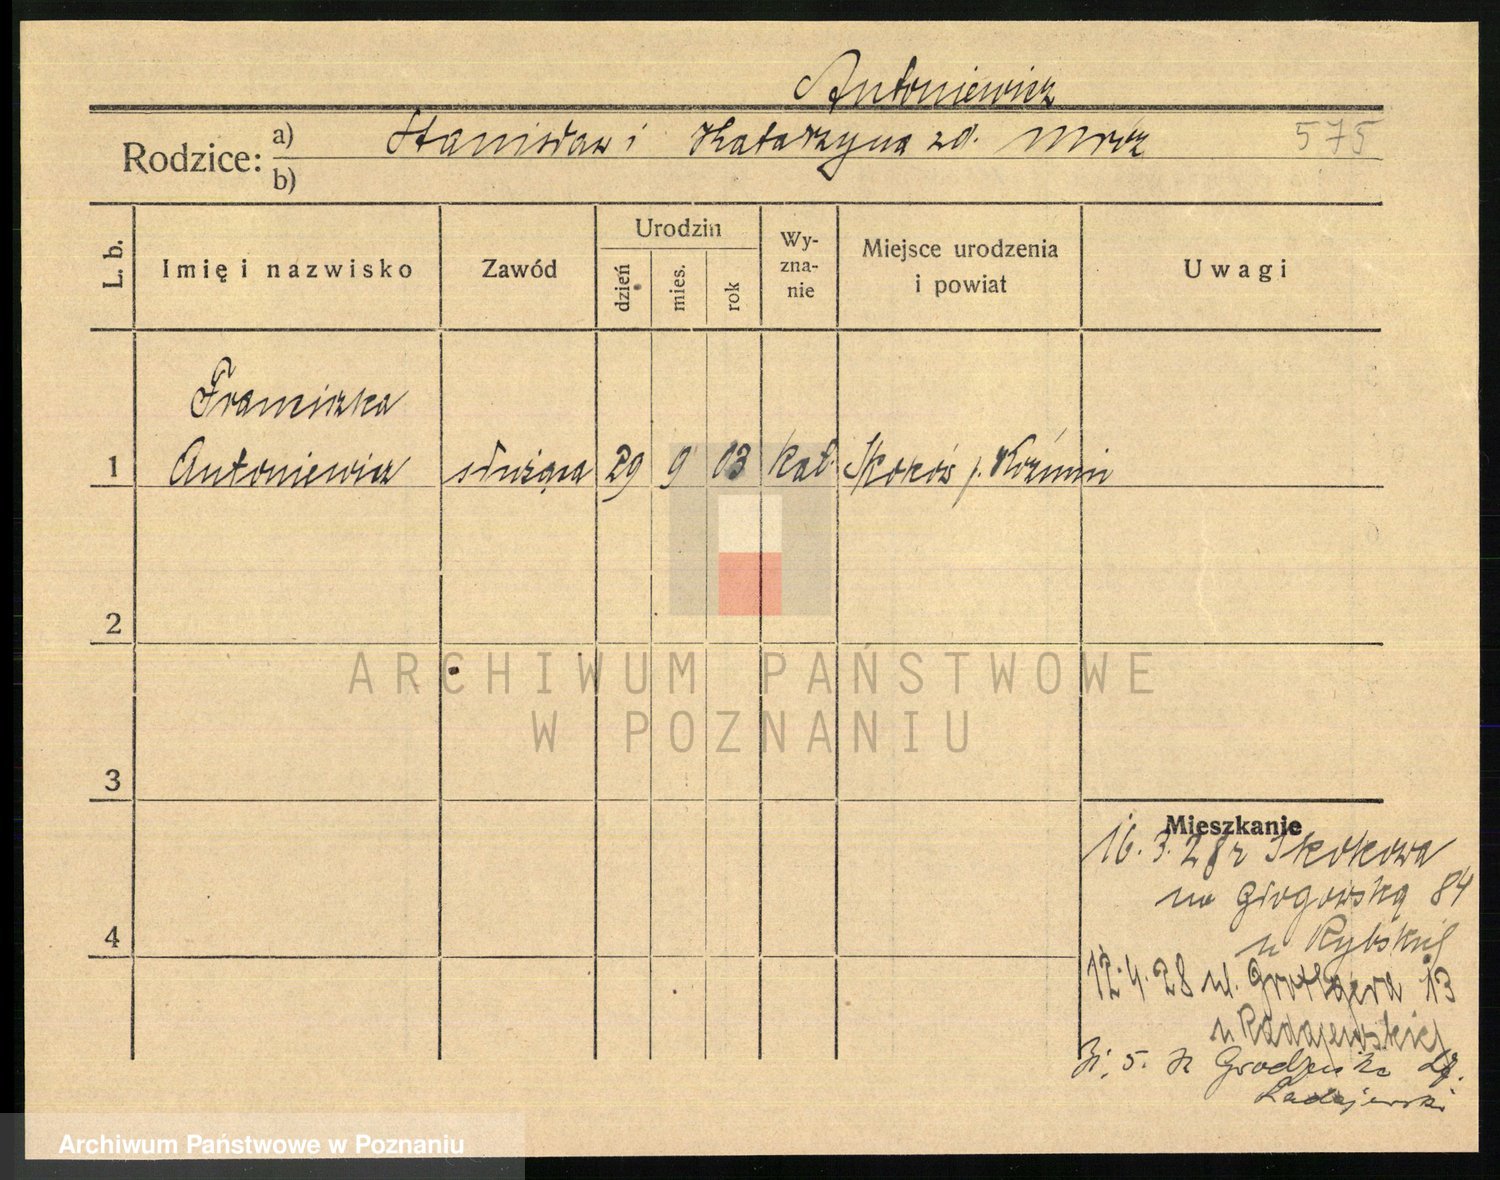 Antoniewicz
Rodzice: a) Stanisław i Katarzyna zd. Mróz 575
b)
L. b. Imię i nazwisko Zawód Urodzin dzień mies. rok Wyznanie Miejsce urodzenia i powiat Uwagi
Franciszka
1 Antoniewicz służąca 29 9 03 kat. Skoków p. Koźmin
2
ARCHIWUM PAŃSTWOWE
W POZNANIU
3
Mieszkanie
16.3.28 r Skokowa
na Głogowską 84
u Rybskiej
4
12.4.28 ul. Grottgera 13
u Radajewskiej
5. Grodziska
Radajewski
Archiwum Państwowe w Poznaniu